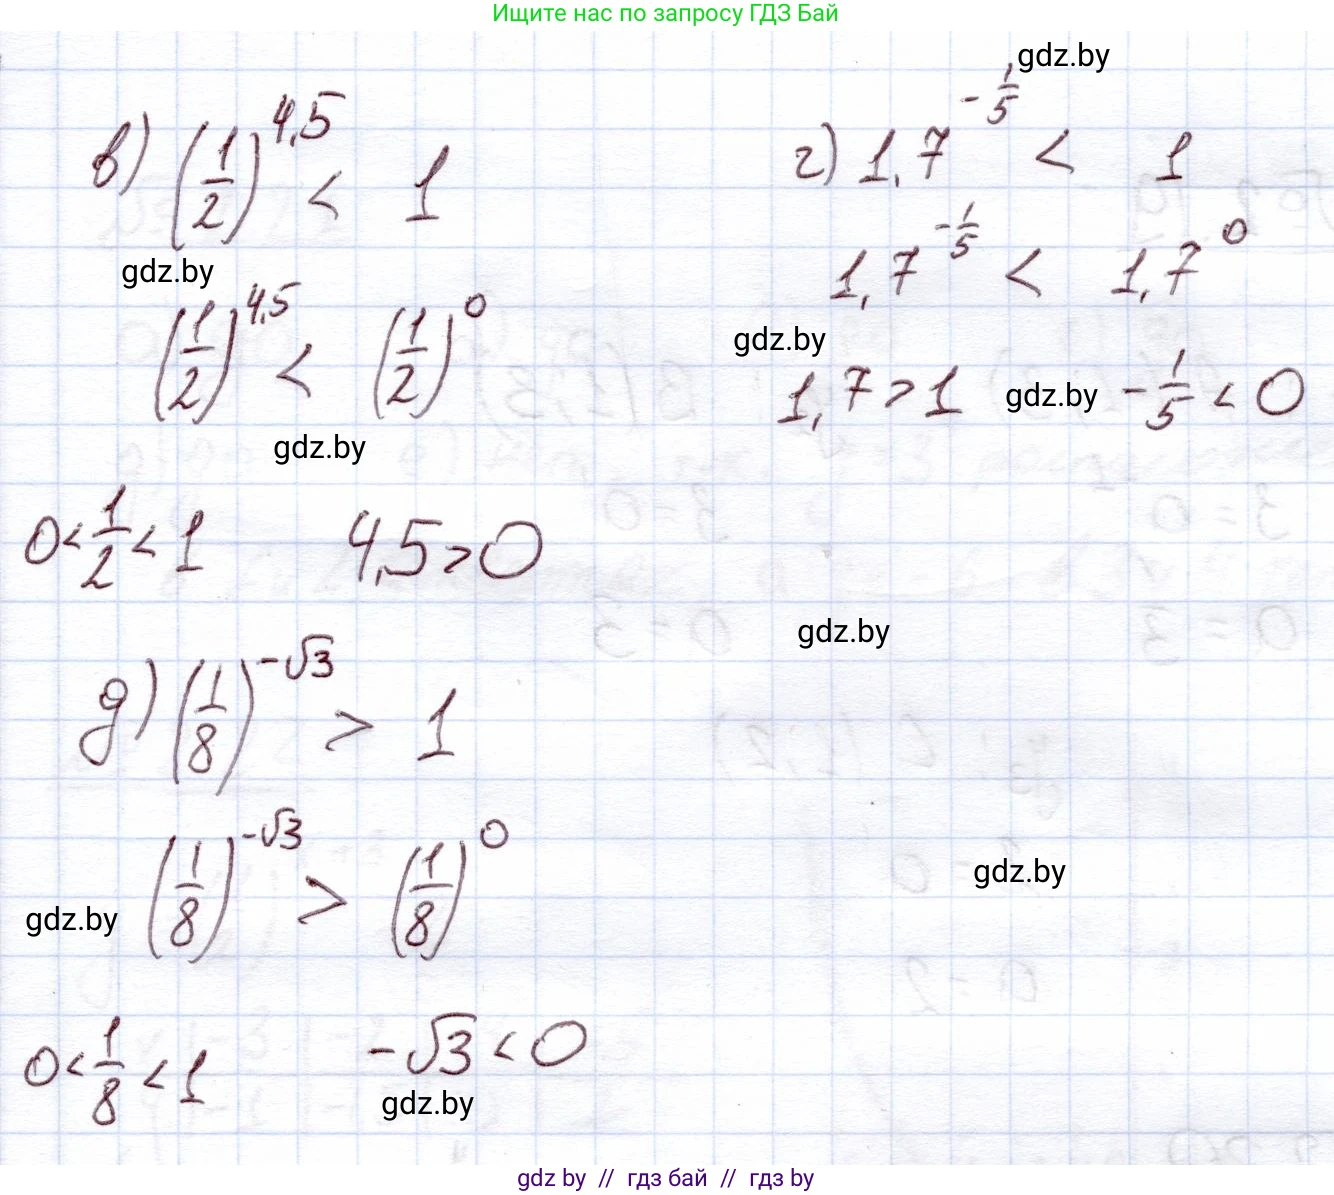 Ищите нас по запросу ГДЗ Бай
gdz.by
в) (1/2)^4,5 < 1
gdz.by
(1/2)^4,5 < (1/2)^0
gdz.by
0 < 1/2 < 1 4,5 > 0
г) 1,7^-1/5 < 1
1,7^-1/5 < 1,7^0
gdz.by
1,7 > 1 gdz.by -1/5 < 0
gdz.by
д) (1/8)^-√3 > 1
gdz.by
(1/8)^-√3 > (1/8)^0
gdz.by
0 < 1/8 < 1 -√3 < 0
gdz.by
gdz by // гдз бай // gdz by